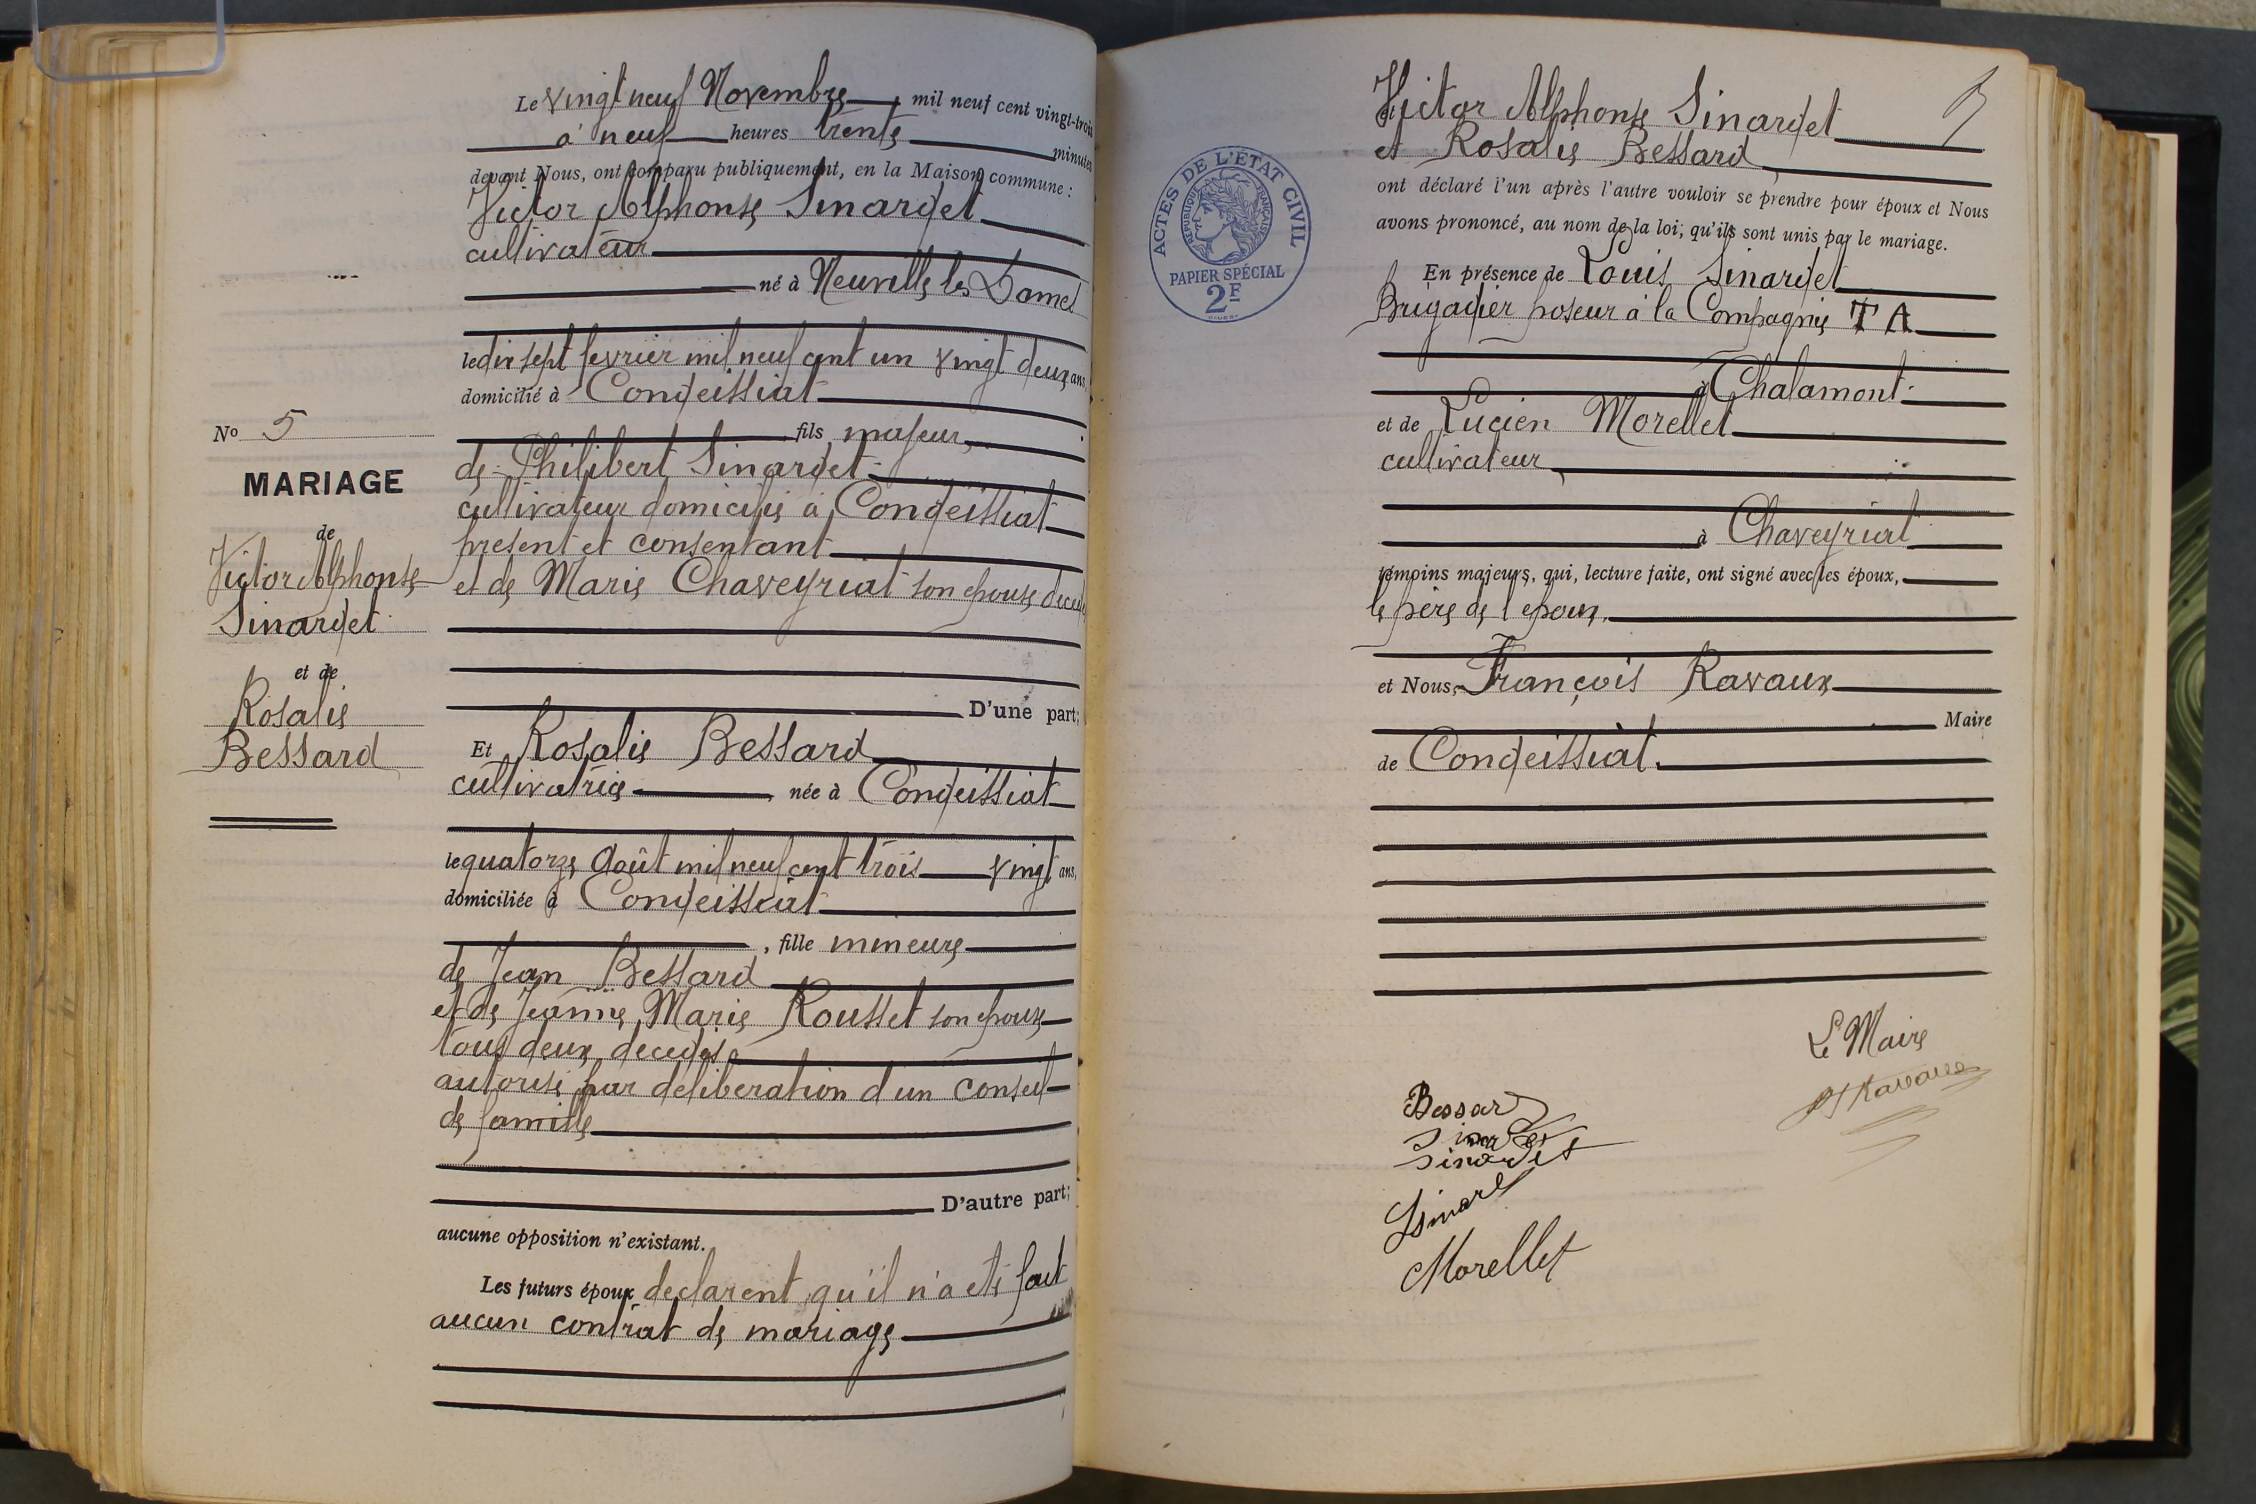 No 5
MARIAGE
de
Victor Alphonse
Sinardet
et de
Rosalie
Bessard
Le vingt neuf Novembre mil neuf cent vingt-trois
à neuf heures trente minutes
devant Nous, ont comparu publiquement, en la Maison commune :
Victor Alphonse Sinardet
cultivateur
né à Neuville les Dames
le dix sept fevrier mil neuf cent un vingt deux ans,
domicilié à Condeissiat
fils majeur
de Philibert Sinardet
cultivateur domicilié à Condeissiat
present et consentant
et de Marie Chaveyriat son epouse
D'une part;
Et Rosalie Bessard
cultivatrice née à Condeissiat
le quatorze Août mil neuf cent trois vingt ans,
domiciliée à Condeissiat
, fille mineure
de Jean Bessard
et de Jeanne Marie Rousset son epouse
tous deux decedés
autorisé par deliberation d'un conseil
de famille
D'autre part;
aucune opposition n'existant.
Les futurs époux declarent qu'il n'a eté fait
aucun contrat de mariage
ACTES DE L'ÉTAT CIVIL
RÉPUBLIQUE FRANÇAISE
PAPIER SPÉCIAL
2F
Victor Alphonse Sinardet
et Rosalie Bessard
ont déclaré l'un après l'autre vouloir se prendre pour époux et Nous
avons prononcé, au nom de la loi, qu'ils sont unis par le mariage.
En présence de Louis Sinardet
Brigadier poseur à la Compagnie T A
à Chalamont
et de Lucien Morellet
cultivateur
à Chaveyriat
témoins majeurs, qui, lecture faite, ont signé avec les époux,
le père de l'epoux
et Nous, François Ravaux
Maire
de Condeissiat.
Le Maire
Ravaux
Bessard
Sinardet
Sinardet
Sinardet
Morellet